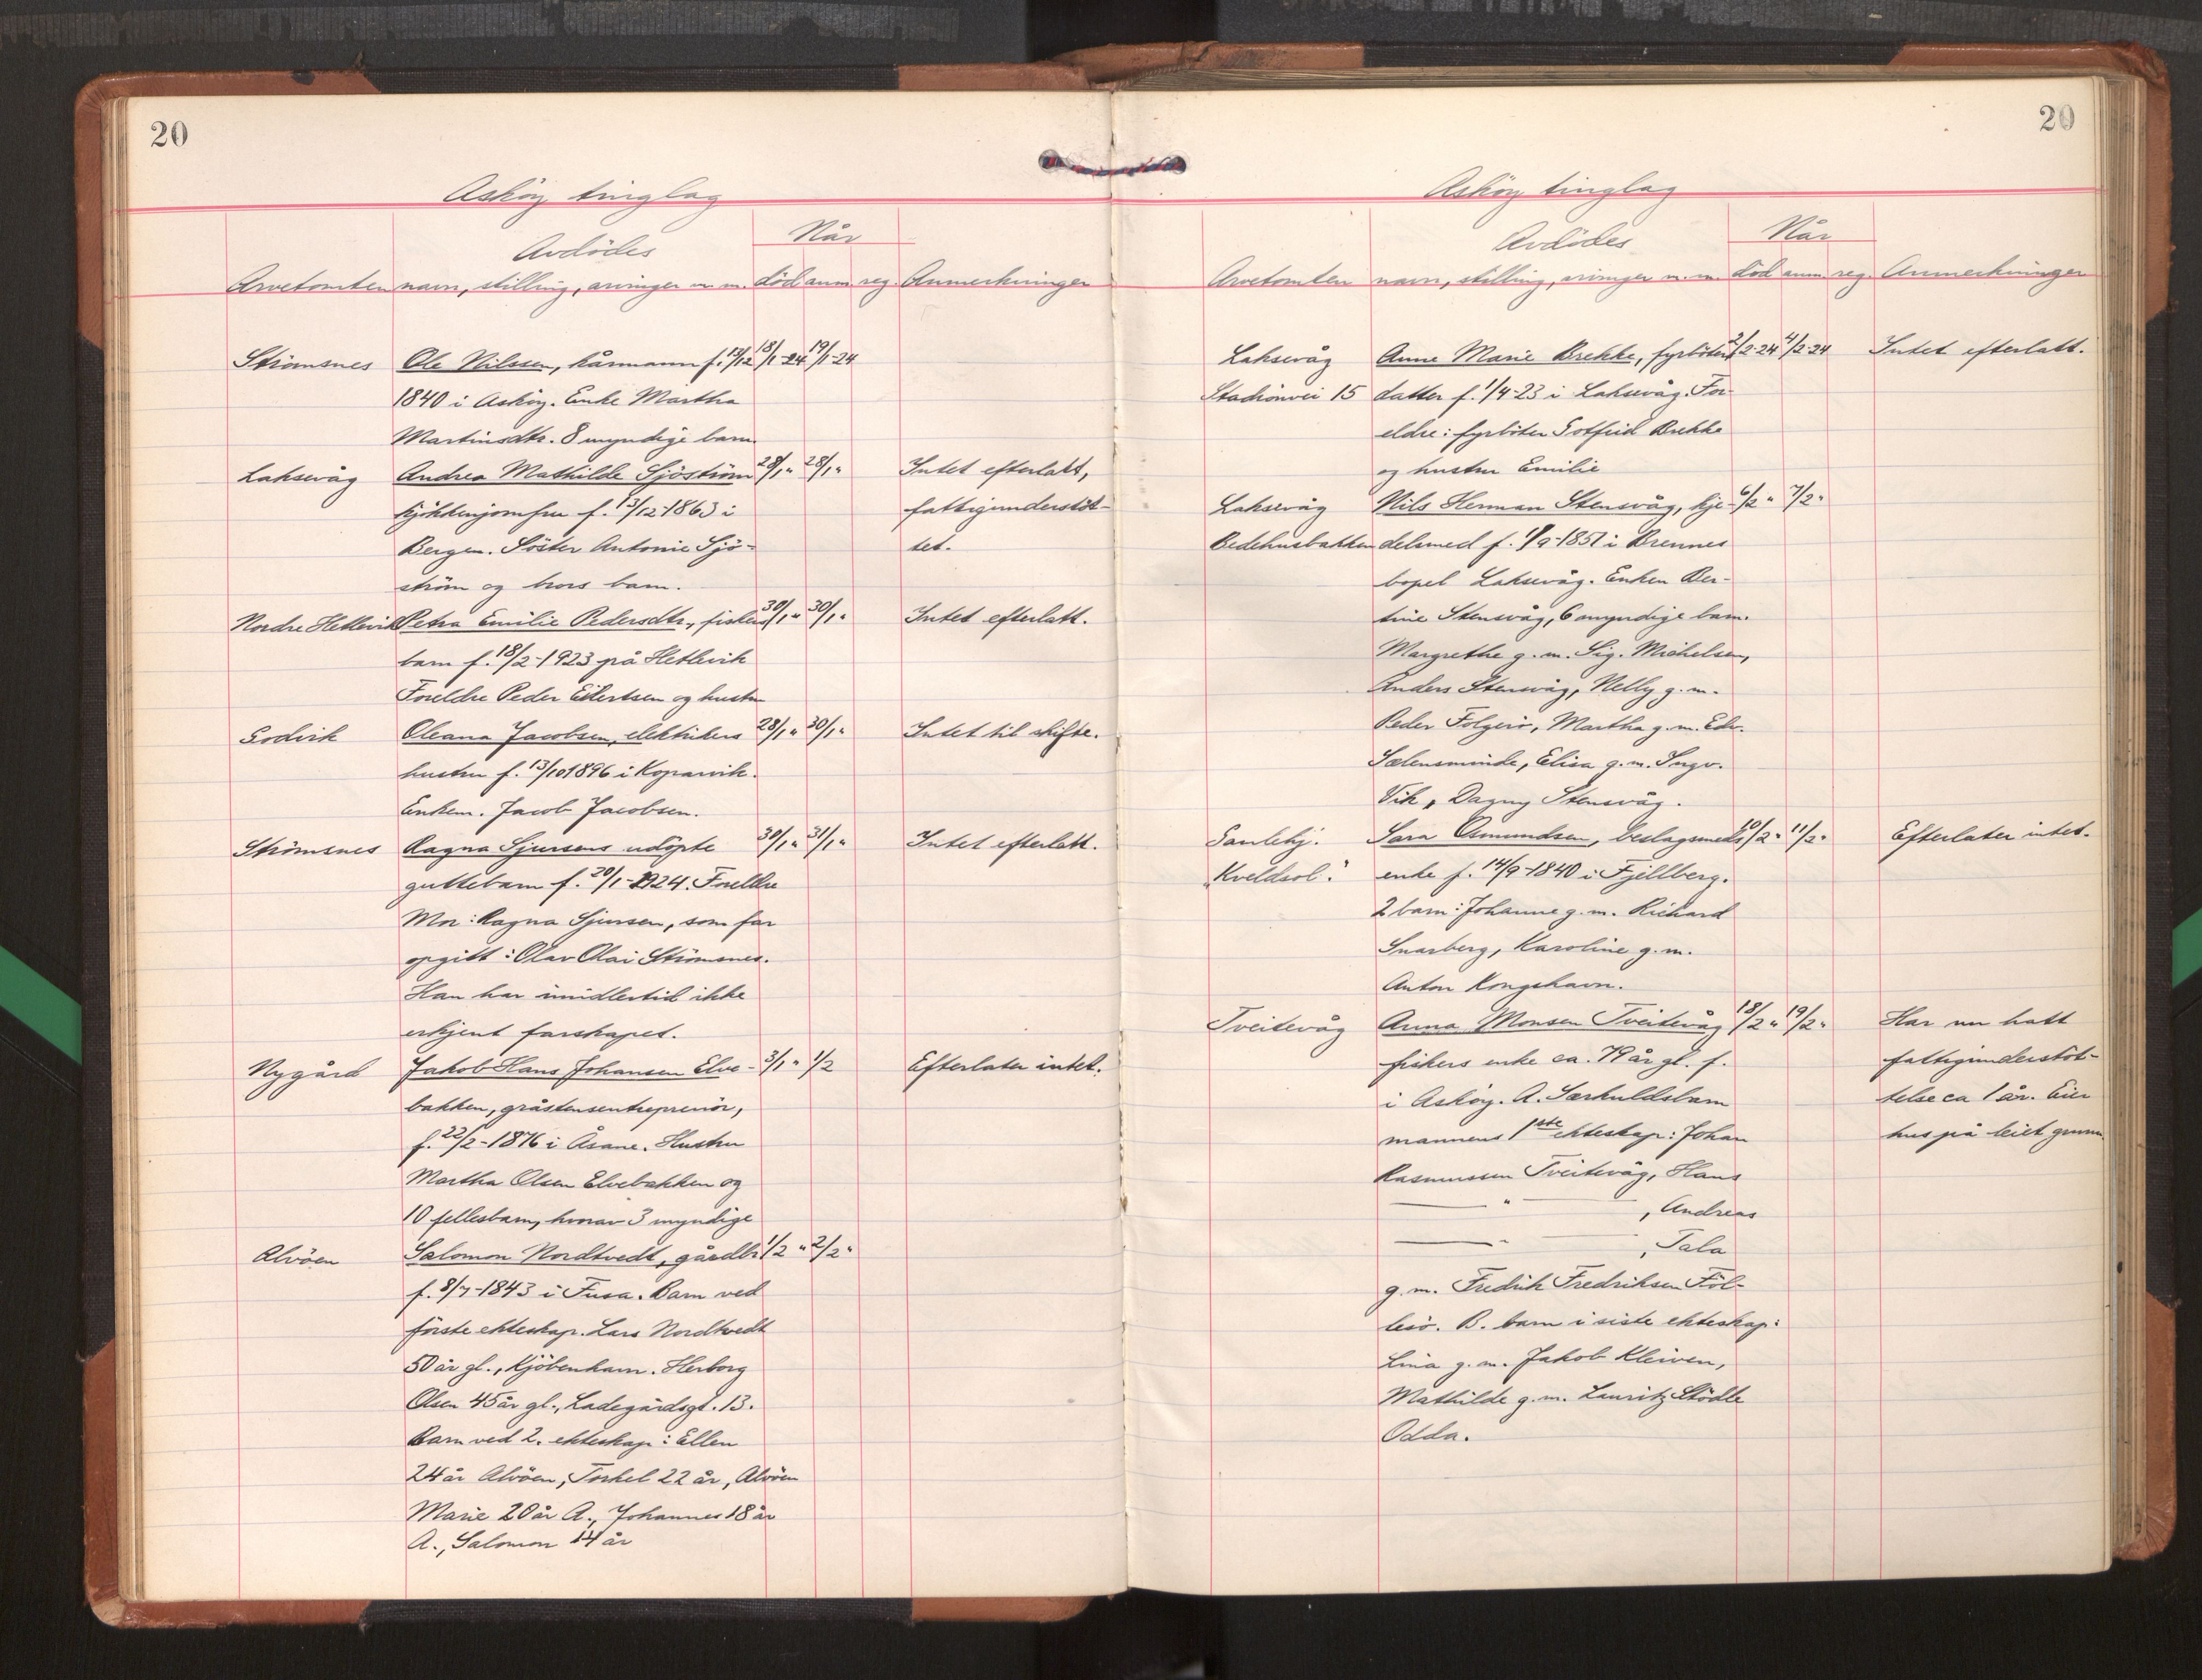 20
Asköy tinglag
Avdödes
Når
Arvetomten navn, stilling, arvinger m.m. död anm. reg. Anmerkninger
Strömsnes Ole Nilssen, kårmann f. 13/12 18/1-24 19/1-24
1840 i Asköy. Enke Martha
Martinsdtr. 8 myndige barn.
Laksevåg Andrea Mathilde Sjöström 28/1 " 28/1 " Intet efterlatt,
kjökkenjomfru f. 13/12-1863 i fattigunderstöt-
Bergen. Söster Antonie Sjö- tet.
ström og brors barn.
Nordre Hetlevik Petra Emilie Pedersdtr., fiskers 30/1 " 30/1 " Intet efterlatt.
barn f. 18/2-1923 på Hetlevik
Foreldre Peder Eilertsen og hustru
Godvik Oleana Jacobsen, elektrikers 28/1 " 30/1 " Intet til skifte.
hustru f. 13/10 1896 i Kopervik.
Enkem. Jacob Jacobsen.
Strömsnes Ragna Sjursens udöpte 30/1 " 31/1 " Intet efterlatt.
guttebarn f. 20/1-1924. Foreldre
Mor: Ragna Sjursen, som far
opgitt: Olav Olai Strömsnes.
Han har imidlertid ikke
erkjent farskapet.
Nygård Jakob Hans Johansen Elve- 3/1 " 1/2 Efterlater intet.
bakken, gråstensentreprenör,
f. 22/2-1876 i Åsane. Hustru
Martha Olsen Elvebakken og
10 fellesbarn, hvorav 3 myndige
Alvöen Salomon Nordtvedt, gårdbr. 1/2 " 2/2 "
f. 8/7-1843 i Fusa. Barn ved
förste ekteskap. Lars Nordtvedt
50 år gl., Kjöbenhavn. Herborg
Olsen 45 år gl., Ladegårdsgt. 13.
Barn ved 2. ekteskap: Ellen
24 år Alvöen, Torkel 22 år, Alvöen
Marie 20 år A., Johannes 18 år
A., Salomon 14 år
20
Asköy tinglag
Avdödes
Når
Arvetomten navn, stilling, arvinger m.m. död anm. reg. Anmerkninger
Laksevåg Anne Marie Brekke, fyrböters 3/2-24 4/2-24 Intet efterlatt.
Stadionvei 15 datter f. 1/4-23 i Laksevåg. For-
eldre: fyrböter Gotfrid Brekke
og hustru Emilie
Laksevåg Nils Herman Stensvåg, kje- 6/2 " 7/2 "
Bedehusbakken delsmed f. 1/9-1851 i Bremnes
bopel Laksevåg. Enken Ber-
tine Stensvåg, 6 myndige barn.
Margrethe g.m. Sig. Mickelsen,
Anders Stensvåg, Nelly g.m.
Peder Folgerö, Martha g.m. Edv.
Sælensminde, Elisa g.m. Ingv.
Vik, Dagny Stensvåg.
Gamlehj. Sara Osmundsen, beslagsmeds 10/2 " 11/2 " Efterlater intet.
"Kveldsol". enke f. 14/9-1840 i Fjellberg.
2 barn: Johanne g.m. Richard
Snarberg, Karoline g.m.
Anton Kongshavn.
Tveitevåg Anna Monsen Tveitevåg 18/2 " 19/2 " Har nu hatt
fiskers enke ca. 79 år gl. f. fattigunderstöt-
i Asköy. A. Særkuldsbarn telse ca 1 år. Eier
mannens 1ste ekteskap: Johan hus på leiet grunn.
Rasmussen Tveitevåg, Hans
— " — , Andreas
— " — , Tala
g.m. Fredrik Fredriksen Föl-
lesö. B. barn i siste ekteskap:
Lina g.m. Jakob Kleiven,
Mathilde g.m. Lauritz Stödle
Odda.